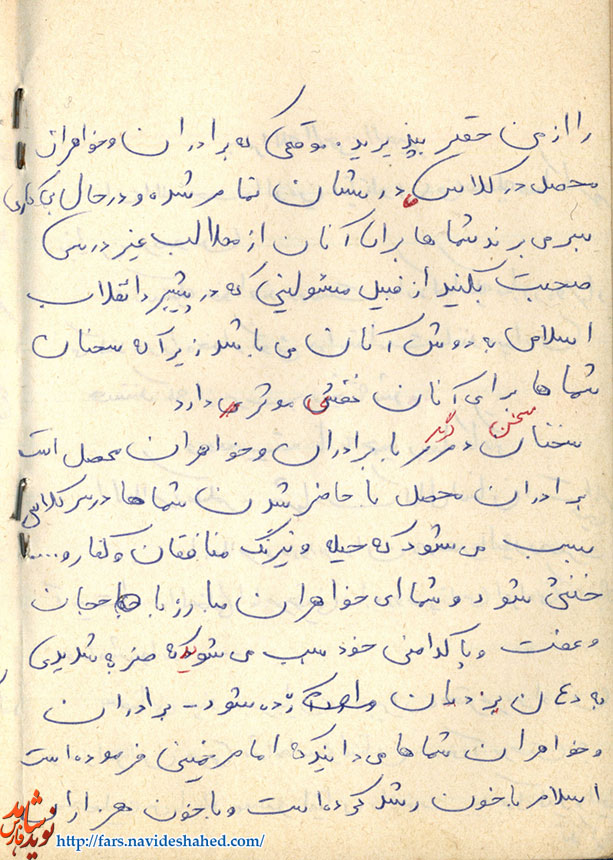 را از من حقیر بپذیرید. موقعی که برادران و خواهران
محصل در کلاس درسشان تمام شده و در حال بی کاری
بسر می برند شما ها برای آنان از مطالب غیر درسی
صحبت بکنید از قبیل مسئولیتی که در پیشبرد انقلاب
اسلامی به دوش آنان می باشد زیرا که سخنان
شما ها برای آنان نقش موثر دارد
سخن
سخنان دیگرم با برادران و خواهران محصل است
برادران محصل با حاضر شدن شما ها در سر کلاس
سبب می شود که حیله و نیرنگ منافقان و کفار و....
خنثی شود و شما ای خواهران مبارز با حجابتان
و عفت و پاکدامنی خود سبب می شوید که ضربه شدیدی
به دهان یزدیان زده شود - برادران
و خواهران شما ها می دانید که امام خمینی فرموده است
اسلام با خون رشد کرده است و با خون هزاران
نوید شاهد فارس
http://fars.navideshahed.com/